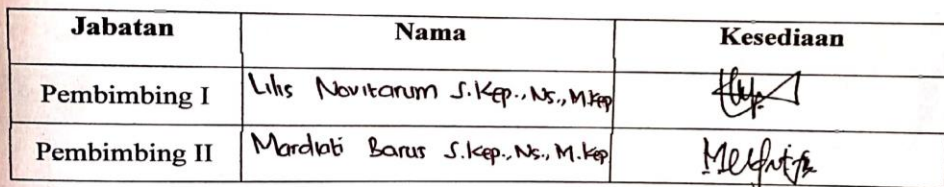 Jabatan Nama Kesediaan
Pembimbing I Lilis Novitarum S.Kep., Ns., M.Kep
Pembimbing II Mardiati Barus S.Kep., Ns., M.Kep